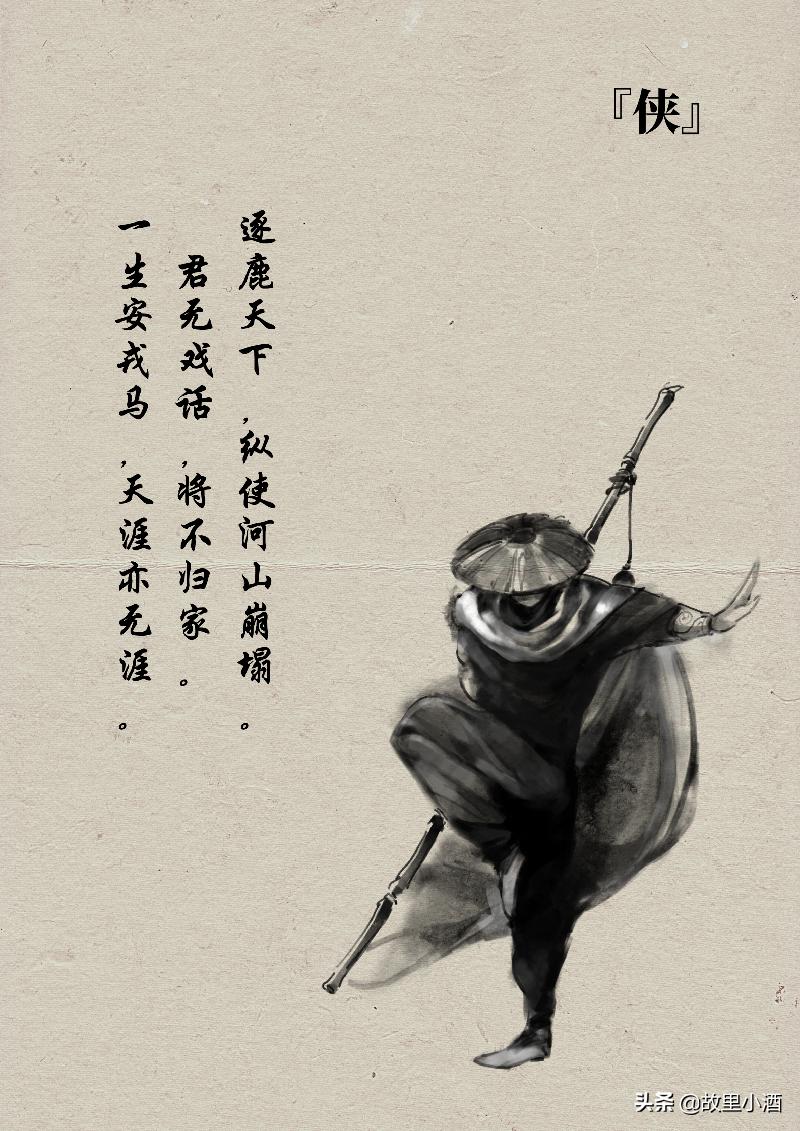 『侠』
逐鹿天下,纵使河山崩塌。
君无戏话,将不归家。
一生安戎马,天涯亦无涯。
头条 @故里小酒